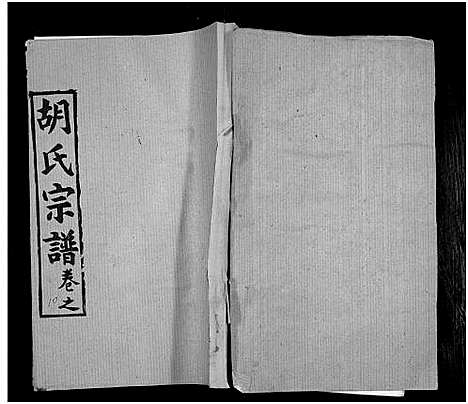 胡氏宗譜
卷之
10